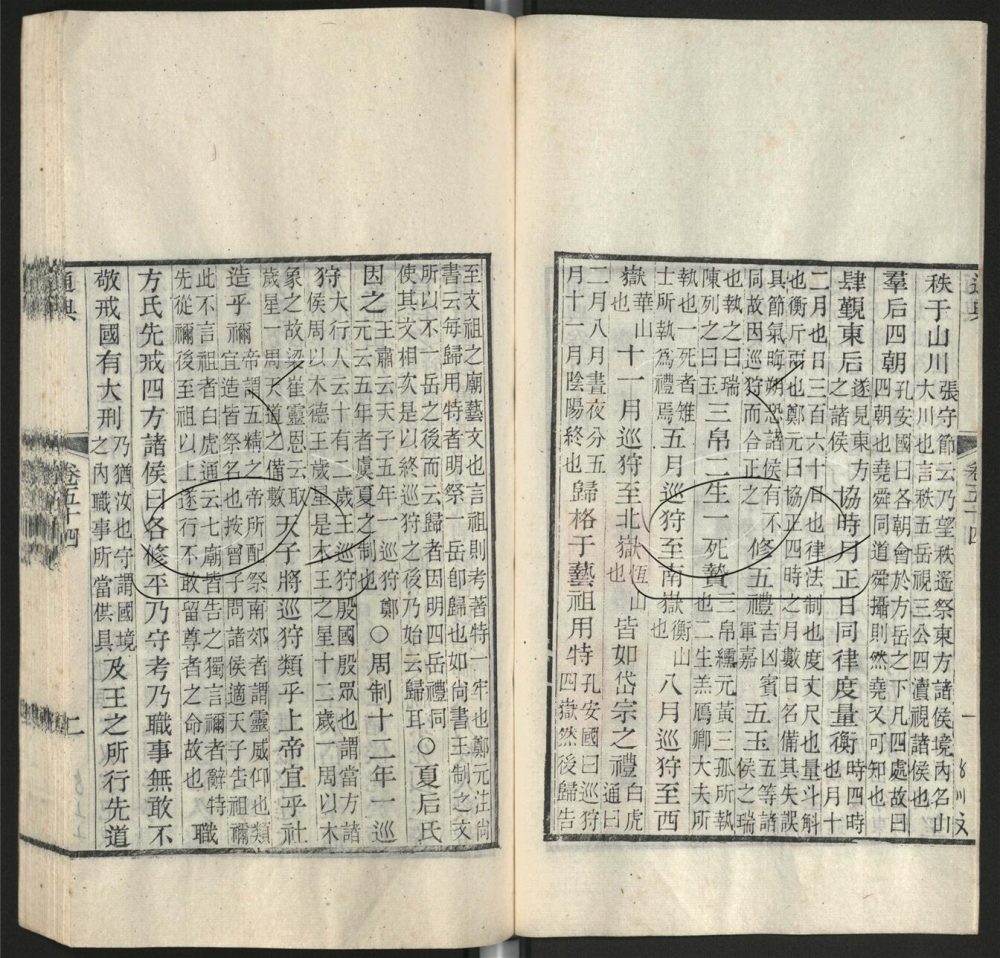 秩于山川張守節云乃望秩遙祭東方諸侯境內名山大川也言秩五岳視三公四瀆視諸侯也
羣后四朝孔安國曰各朝會於方岳之下凡四處故曰四朝也堯舜同道舜攝則然堯又可知也
肆覲東后遂見東方之諸侯協時月正日同律度量衡時四時也月十
二月也日三百六十日也律法制也度丈尺也量斗斛也衡斤兩也鄭元曰協正四時之月數日名備其失誤
具節氣晦朔恐諸侯有不同故因巡狩而合正之修五禮吉凶賓軍嘉五玉五等諸侯之瑞
也執之曰瑞陳列之曰玉三帛二生一死贄三帛纁元黃三孤所執也二生羔鴈卿大夫所
執也一死者雉士所執為禮焉五月巡狩至南嶽衡山也八月巡狩至西
嶽華山也十一月巡狩至北嶽恆山也皆如岱宗之禮白虎通曰
二月八月晝夜分五月十一月陰陽終也歸格于藝祖用特孔安國曰巡狩四嶽然後歸告
卷五十四
至文祖之廟藝文也言祖則考著特一牢也鄭元注尚書云每歸用特者明祭一岳卽歸也如尚書王制之文
所以不一岳之後而云歸者因明四岳禮同使其文相次是以終巡狩之後乃始云歸耳○夏后氏
因之王肅云天子五年一巡狩鄭元云五年者虞夏之制也○周制十二年一巡
狩大行人云十有二歲王巡狩殷國殷眾也謂當方諸侯周以木德王歲星是木王之星十二歲一周以木
象之故梁崔靈恩云取歲星一周天道之備數天子將巡狩類乎上帝宜乎社
造乎禰帝謂五精之帝所配祭南郊者謂靈威仰也類宜造皆祭名也按曾子問諸侯適天子告祖禰
此不言祖者白虎通云七廟皆告之獨言禰者辭特先從禰後至祖以上遂行不敢留尊者之命故也職
方氏先戒四方諸侯曰各修平乃守考乃職事無敢不
敬戒國有大刑乃猶汝也守謂國境之內職事所當俱具及王之所行先道
通典
卷五十四